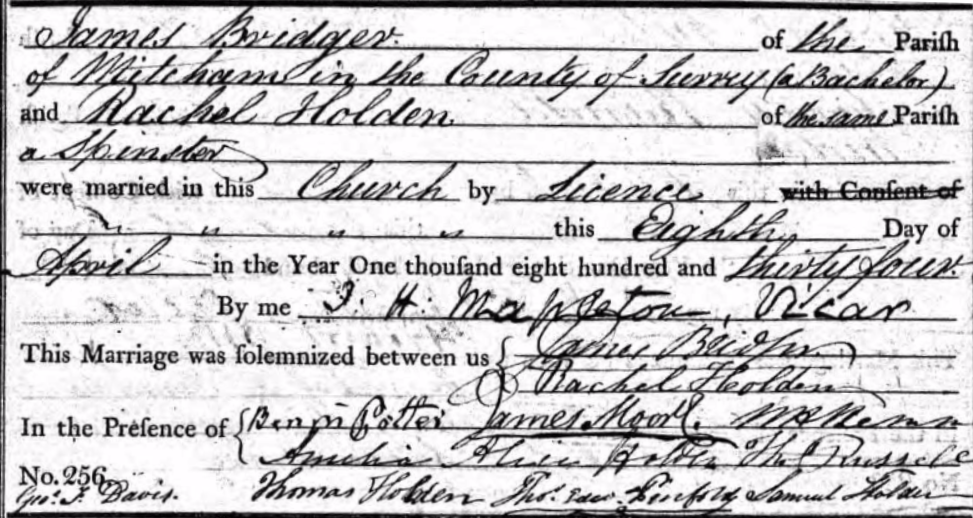 James Bridger. of the Pariſh
of Mitcham in the County of Surrey (a Bachelor)
and Rachel Holden. of the same Pariſh
a Spinster
were married in this Church by Licence with Conſent of
" " " " " this Eighth Day of
April in the Year One thouſand eight hundred and thirty four.
By me J. H. Mapleton, Vicar
This Marriage was ſolemnized between us James Bridger
Rachel Holden
In the Preſence of Benjn Potter James Moore.
Amelia Alice Holden Thos Russell
No. 256.
Geo. F. Davis. Thomas Holden Thos. Edwd. Samuel Holden